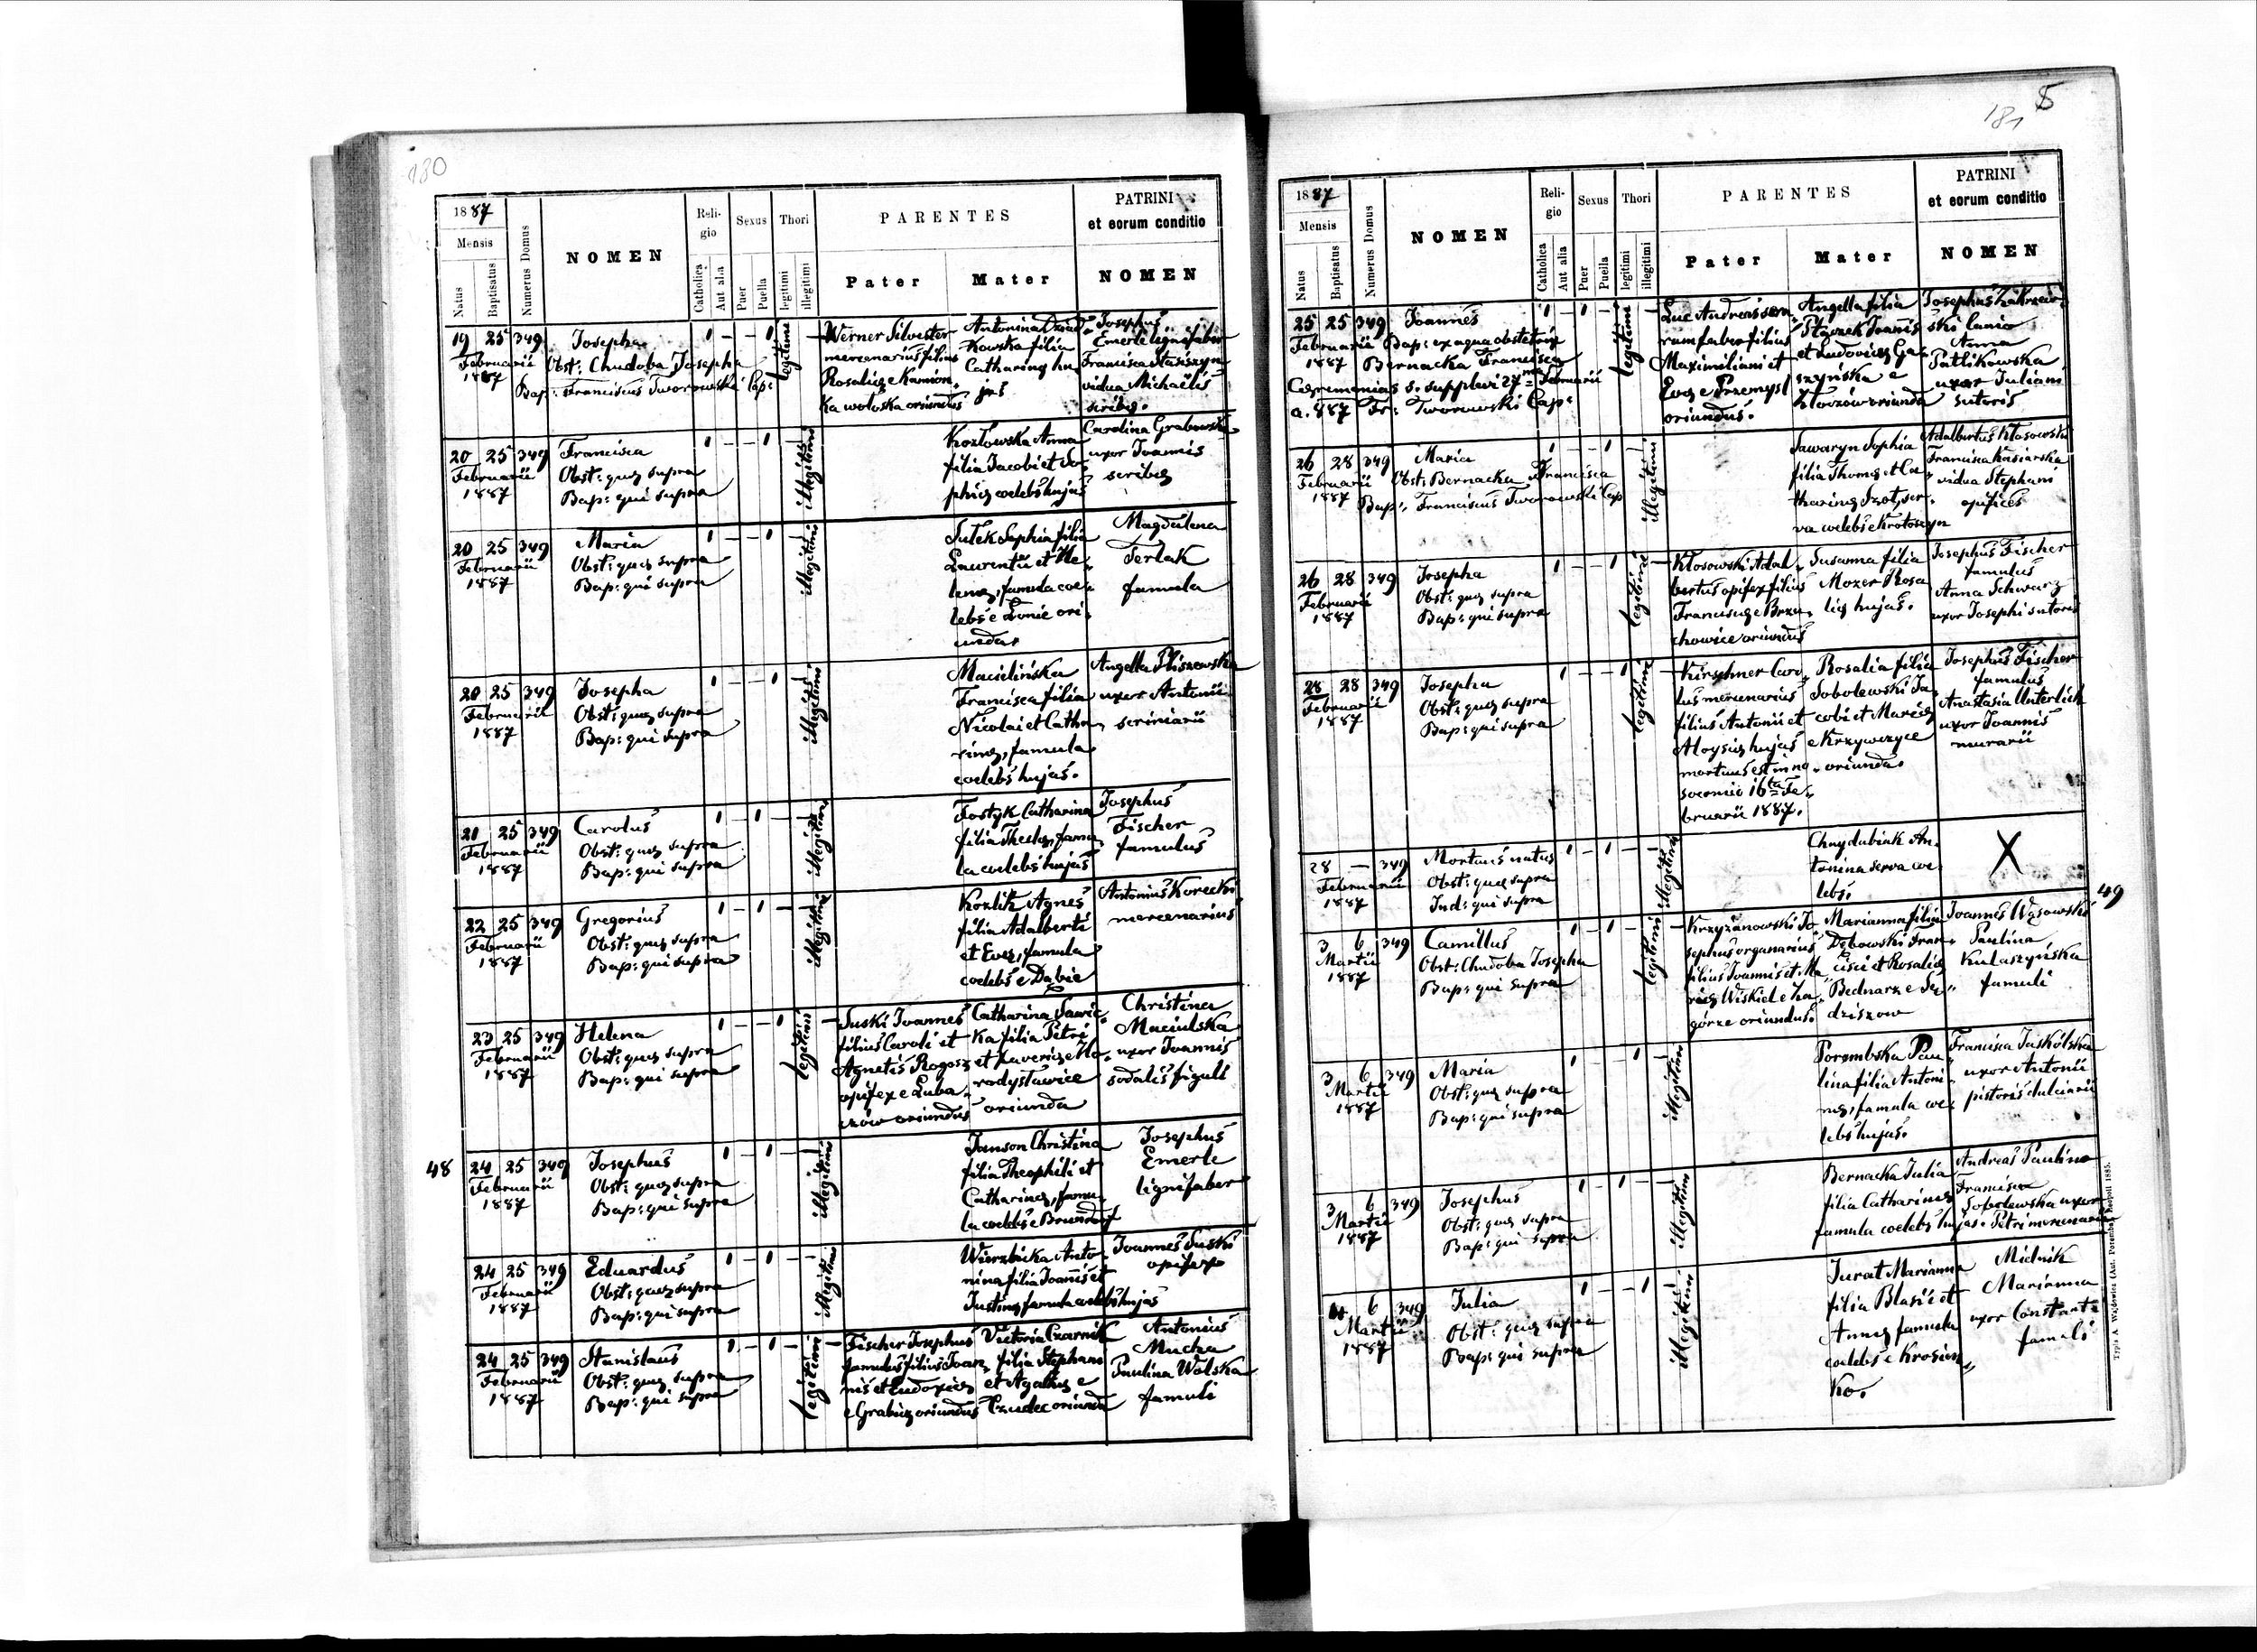 180
1887
Mensis
Natus
Baptisatus
Numerus Domus
NOMEN
Religio
Catholica
Aut alia
Sexus
Puer
Puella
Thori
legitimi
illegitimi
PARENTES
Pater
Mater
PATRINI
et eorum conditio
NOMEN
19 25 349
Februarii
1887
Josepha
Obst: Chudoba Josepha
Bap: Franciscus Tworowski Cap:
1 – – 1
legitimi
Werner Silvester
mercenarius filius
Rosaliæ e Kamion-
ka wołoska oriundus
Antonina Dziad-
kowska filia
Catharinæ hu-
jas
Josephus
Emerle lignifaber
Francisca Staszyn
vidua Michaelis
scribæ.
20 25 349
Februarii
1887
Francisca
Obst: quæ supra
Bap: qui supra
1 – – 1 –
illegitimi
Kozłowska Anna
filia Jacobi et So-
phiæ coelebs hujas
Carolina Grabowska
uxor Joannis
scribæ
20 25 349
Februarii
1887
Maria
Obst: quæ supra
Bap: qui supra
1 – – 1 –
illegitimi
Sutek Sophia filia
Laurentii et He-
lenæ, famula coe-
lebs e Łonie ori-
unda.
Magdalena
Terlak
famula
20 25 349
Februarii
1887
Josepha
Obst: quæ supra
Bap: qui supra
1 – – 1 –
illegitimi
Macielińska
Francisca filia
Nicolai et Catha-
rinæ, famula
coelebs hujas.
Angella Pliszewska
uxor Antonii
scriniarii
21 25 349
Februarii
1887
Carolus
Obst: quæ supra
Bap: qui supra
1 – 1 – –
illegitimi
Fostyk Catharina
filia Theclæ, famu-
la coelebs hujas
Josephus
Fischer
famulus
22 25 349
Februarii
1887
Gregorius
Obst: quæ supra
Bap: qui supra
1 – 1 – –
illegitimi
Kozlik Agnes
filia Adalberti
et Evæ, famula
coelebs e Dąbie
Antonius Korecki
mercenarius
23 25 349
Februarii
1887
Helena
Obst: quæ supra
Bap: qui supra
1 – – 1
legitimi
Suski Joannes
filius Caroli et
Agnetis Rogosz
opifex e Luba-
czów oriundus
Catharina Sawic-
ka filia Petri
et Xaveriæ e Ho-
rodysławice
oriunda
Christina
Maciulska
uxor Joannis
sodalis figuli
48
24 25 349
Februarii
1887
Josephus
Obst: quæ supra
Bap: qui supra
1 – 1 – –
illegitimi
Janson Christina
filia Theophili et
Catharinæ, famu-
la coelebs e Brunndorf
Josephus
Emerle
lignifaber
24 25 349
Februarii
1887
Eduardus
Obst: quæ supra
Bap: qui supra
1 – 1 – –
illegitimi
Wierzbicka Anto-
nina filia Joannis et
Justinæ famula coelebs hujas
Joannes Suski
opifex
24 25 349
Februarii
1887
Stanislaus
Obst: quæ supra
Bap: qui supra
1 – 1 –
legitimi
Fischer Josephus
famulus filius Joan-
nis et Eudoxiæ
e Grabicz oriundus
Victoria Czarnik
filia Stephani
et Agathæ e
Czudec oriunda
Antonius
Mucha
Paulina Wolska
famuli
181
5
1887
Mensis
Natus
Baptisatus
Numerus Domus
NOMEN
Religio
Catholica
Aut alia
Sexus
Puer
Puella
Thori
legitimi
illegitimi
PARENTES
Pater
Mater
PATRINI
et eorum conditio
NOMEN
25 25 349
Februarii
1887
Joannes
Bap: ex aqua obstetrix
Bernacka Francisca
Cæremonias s. supplevi 27ma Februarii
a. 887 Fr: Tworowski Cap:
1 – 1 –
legitimi
Luc Andreas ser-
rum faber filius
Maximiliani et
Evæ e Przemysl
oriundus.
Angella filia
Staczek Joannis
et Ludovicæ Ga-
szyńska e
Złoczów oriunda
Josephus Zakrzew-
ski lanio
Anna
Patlikowska
uxor Juliani
sutoris
26 28 349
Februarii
1887
Maria
Obst: Bernacka Francisca
Bap: Franciscus Tworowski Cap
1 – – 1
illegitimi
Sawaryn Sophia
filia Thomæ et Ca-
tharinæ Szot, ser-
va coelebs e Krotoszyn
Adalbertus Kłosowski
Francisca Kasiarska
vidua Stephani
opifices
26 28 349
Februarii
1887
Josepha
Obst: quæ supra
Bap: qui supra
1 – – 1
legitimi
Kłosowski Adal-
bertus opifex filius
Franciscæ e Brzu-
chowice oriundus
Susanna filia
Mozer Rosa-
liæ hujas.
Josephus Fischer
famulus
Anna Schwarz
uxor Josephi sutoris
28 28 349
Februarii
1887
Josepha
Obst: quæ supra
Bap: qui supra
1 – – 1
legitimi
Kirschner Caro-
lus mercenarius
filius Antonii et
Aloysiæ hujas
mortuus est in no-
socomio 16ta Fe-
bruarii 1887.
Rosalia filia
Sobolewski Ja-
cobi et Mariæ
e Krzywczyce
oriunda.
Josephus Fischer
famulus
Anastasia Unterlick
uxor Joannis
murarii
28 – 349
Februarii
1887
Mortuus natus
Obst: quæ supra
Ind: qui supra
1 – 1 – –
illegitimi
Chuydubiak An-
tonina serva coe-
lebs.
X
49
3 6 349
Martii
1887
Camillus
Obst: Chudoba Josepha
Bap: qui supra
1 – 1 –
legitimi
Krzyżanowski Jo-
sephus organarius
filius Joannis et Ma-
riæ Wiskiel e Za-
górze oriundus.
Marianna filia
Dębowski Fran-
cisci et Rosaliæ
Bednarz e Sę-
dziszow
Joannes Wąsowski
Paulina
Kulaszyńska
famuli
3 6 349
Martii
1887
Maria
Obst: quæ supra
Bap: qui supra
1 – – 1 –
illegitimi
Porembska Pau-
lina filia Antoni-
næ, famula coe-
lebs hujas.
Francisca Jaskólska
uxor Antonii
pistoris dulciarii
3 6 349
Martii
1887
Josephus
Obst: quæ supra
Bap: qui supra
1 – 1 – –
illegitimi
Bernacka Julia
filia Catharinæ
famula coelebs hujas.
Andreas Paulina
Francisca
Sobolewska uxor
Petri mercenarii
6 349
Martii
1887
Julia
Obst: quæ supra
Bap: qui supra
1 – – 1
illegitimi
Jurat Marianna
filia Blasii et
Annæ famula
coelebs e Krosien-
ko.
Midnik
Marianna
uxor Constanti
famuli